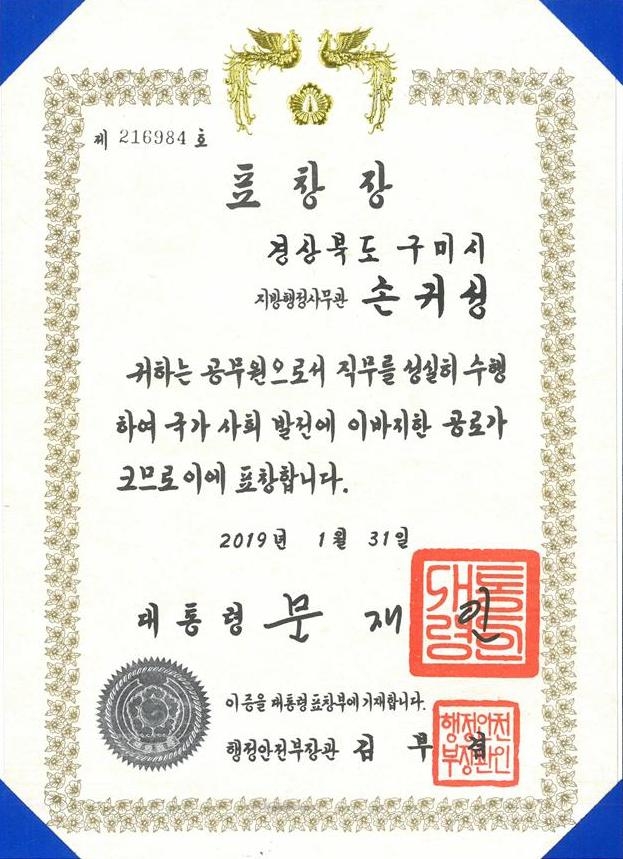 제 216984 호
표창장
경상북도 구미시
지방행정사무관 손귀성
귀하는 공무원으로서 직무를 성실히 수행
하여 국가 사회 발전에 이바지한 공로가
크므로 이에 표창합니다.
2019년 1월 31일
대통령 문재인
대통령의인
이 증을 대통령 표창부에 기재합니다.
행정안전부장관 김부겸
행정안전부장관인